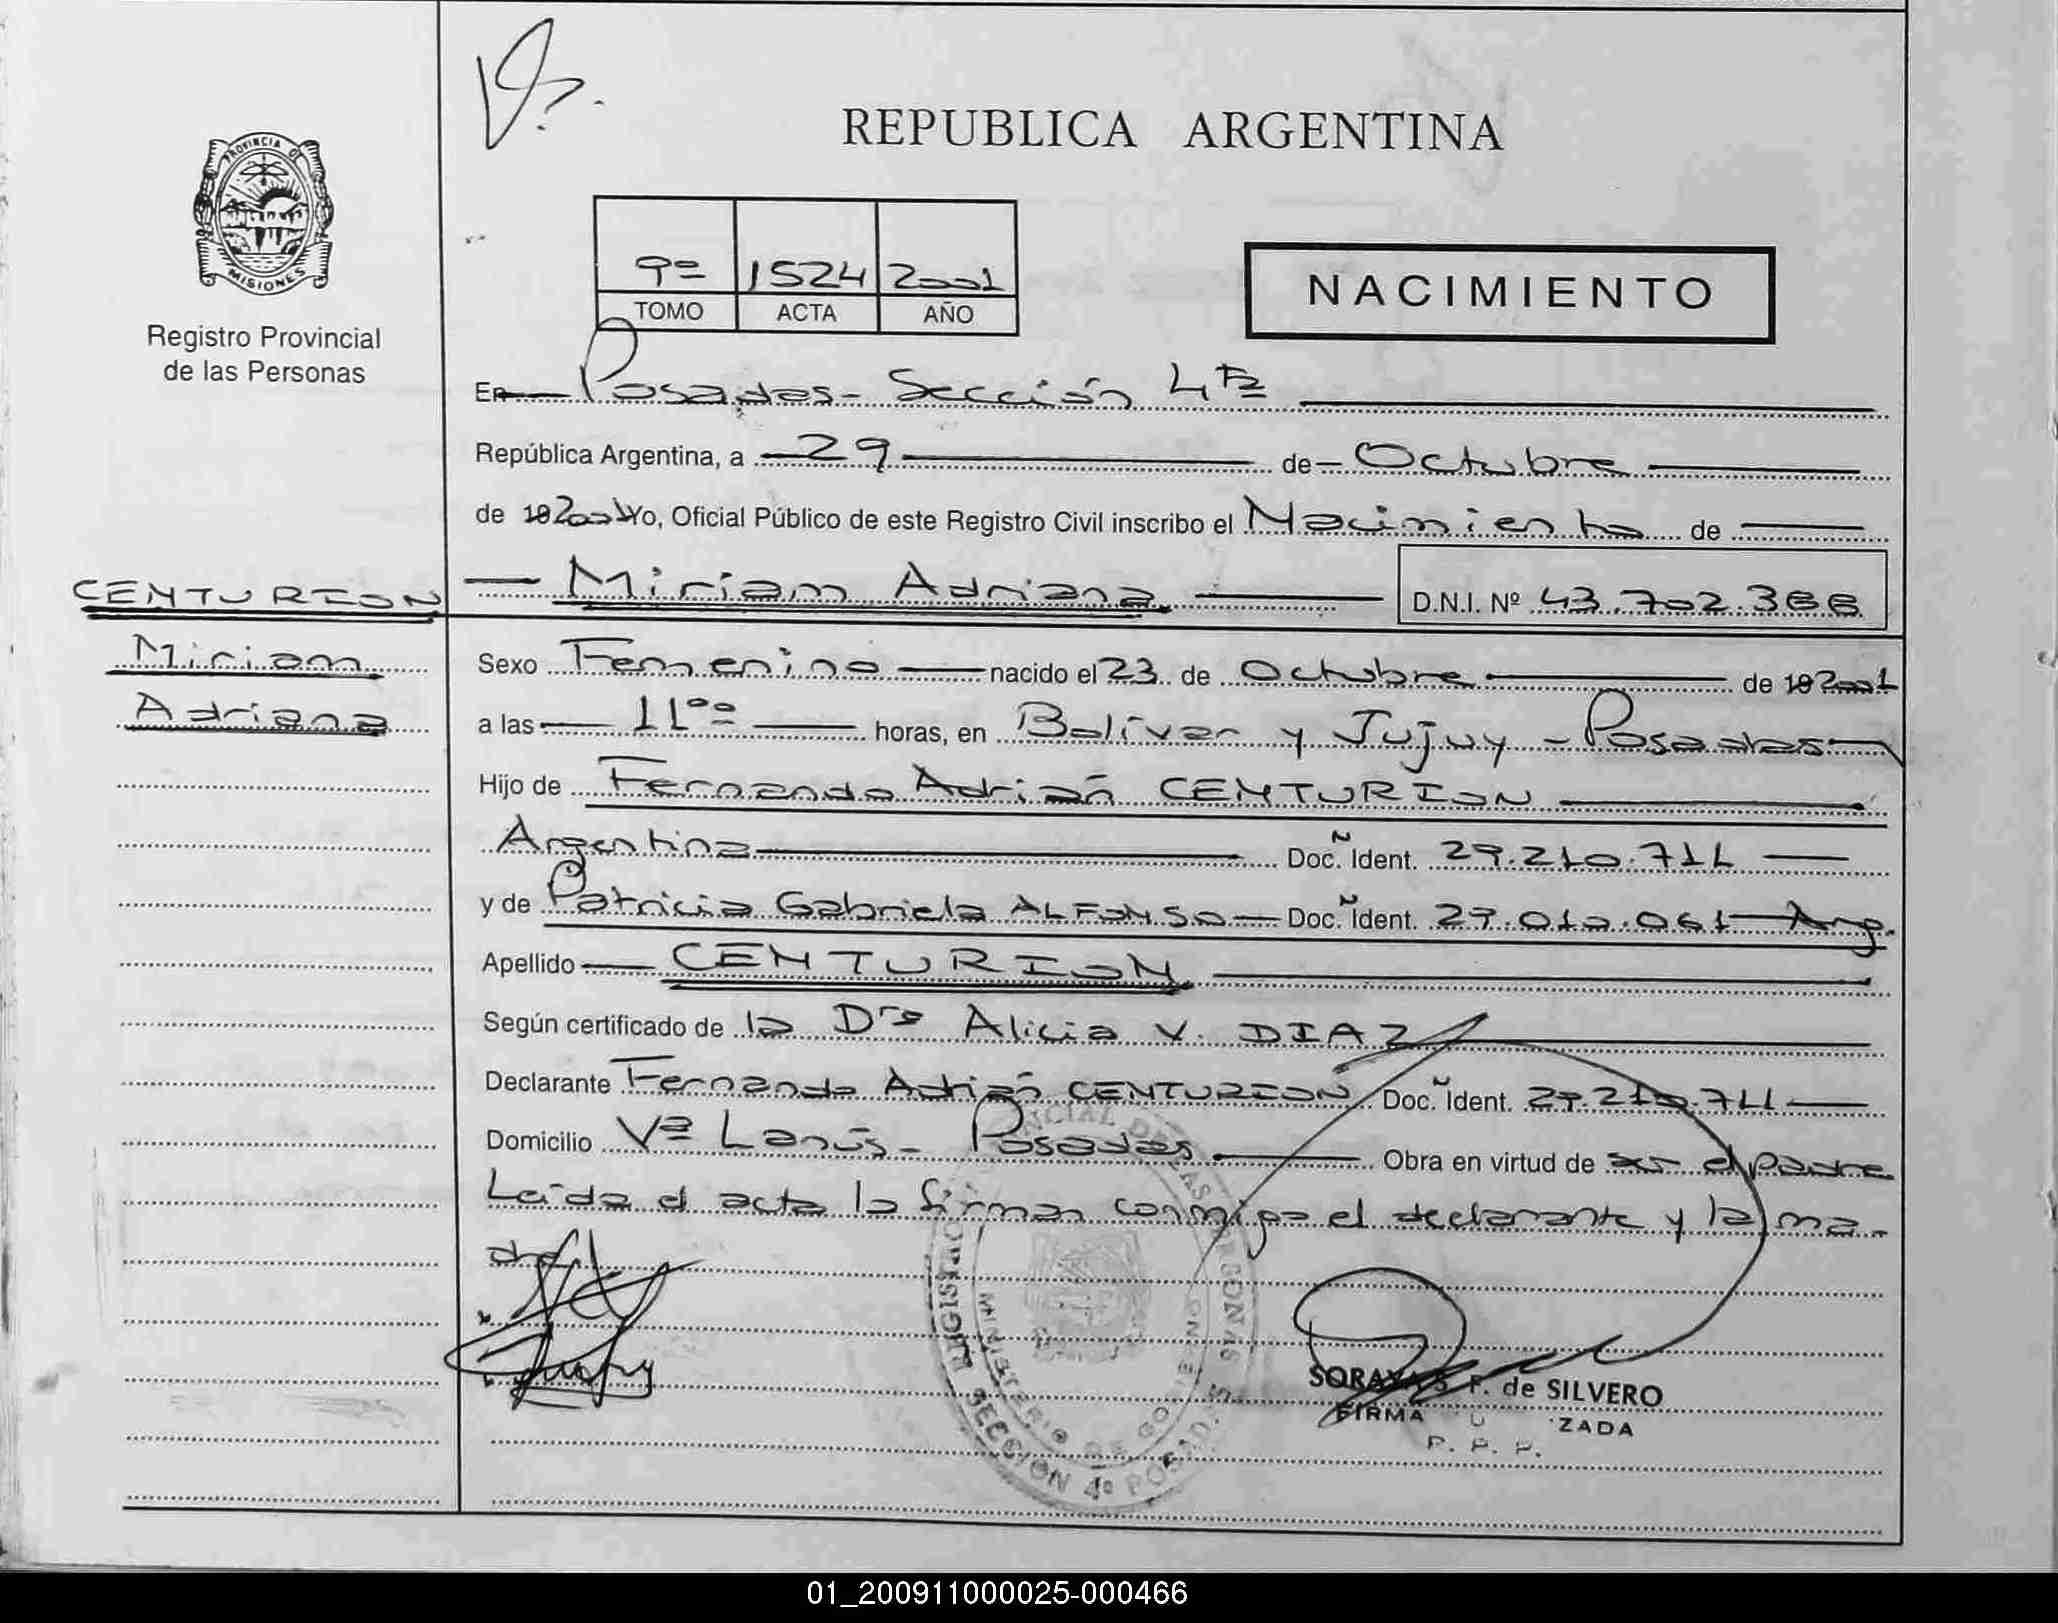 REPUBLICA ARGENTINA
PROVINCIA DE
MISIONES
Registro Provincial
de las Personas
9º 1524 2001
TOMO ACTA AÑO
NACIMIENTO
En Posadas - Sección 4ta
República Argentina, a 29 de Octubre
de 19 2001 Yo, Oficial Público de este Registro Civil inscribo el Nacimiento de
CENTURION
Miriam
Adriana
Miriam Adriana D.N.I. Nº 43.702.388
Sexo Femenino nacido el 23 de Octubre de 19 2001
a las 11ºº horas, en Bolívar y Jujuy - Posadas
Hijo de Fernando Adrián CENTURION
Argentina Doc. Ident. 29.210.711
y de Patricia Gabriela ALFONSO Doc. Ident. 29.010.061 Arg.
Apellido CENTURION
Según certificado de la Dra Alicia V. DIAZ
Declarante Fernando Adrián CENTURION Doc. Ident. 29.210.711
Domicilio Vª Lanús - Posadas Obra en virtud de ser el padre
Leída el acta la firman conmigo el declarante y la ma-
dre
SORAYA S. F. de SILVERO
FIRMA ZADA
R. P. P.
MINISTERIO DE GOBIERNO
SECCION 4º POSAD.
01_200911000025-000466